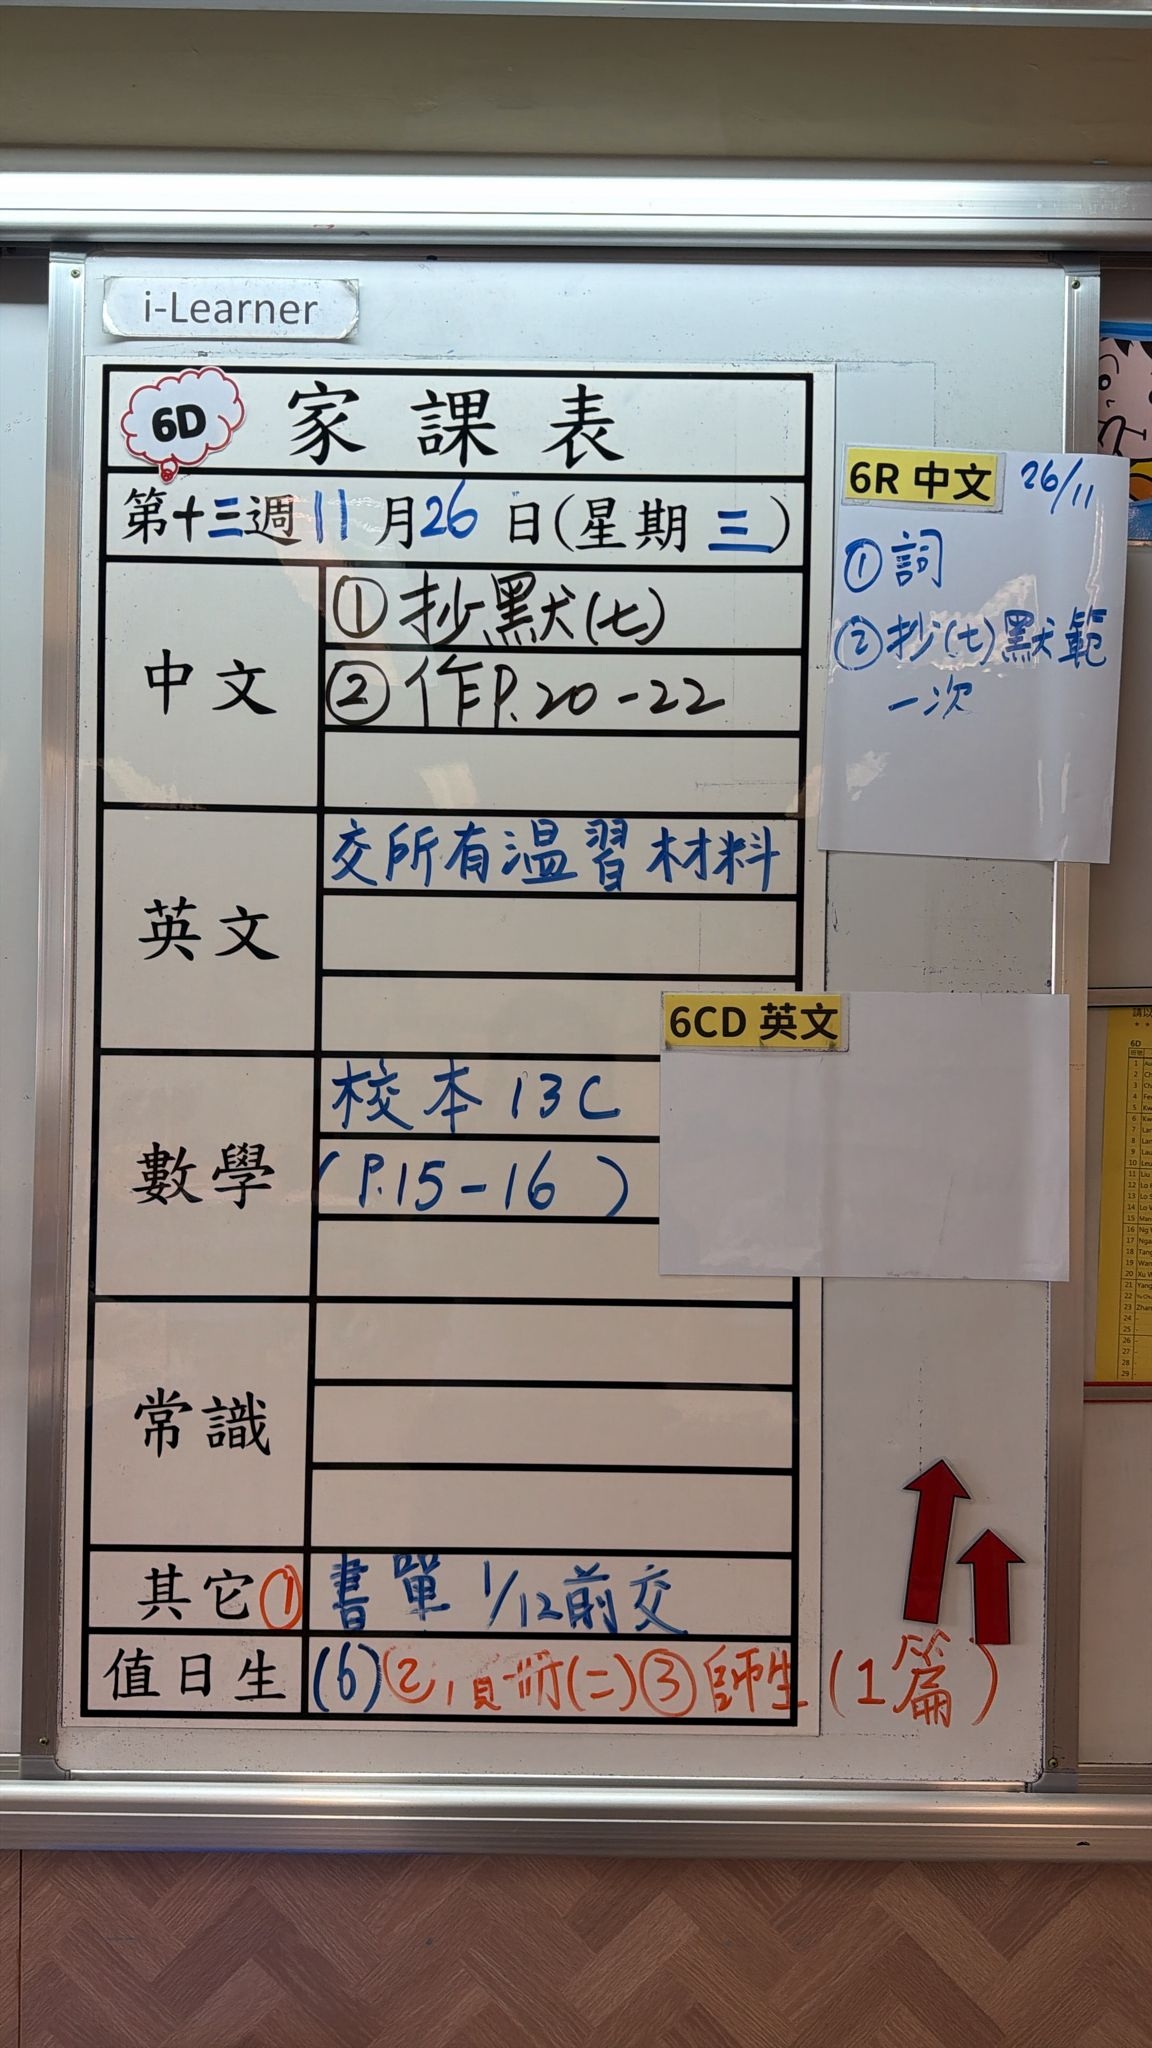 i-Learner
6D 家課表
第十三週11月26日(星期三)
中文
①抄默(七)
②作P.20-22
英文
交所有溫習材料
數學
校本13C
(P.15-16)
常識
其它① 書單 1/12前交
值日生 (6) ② 冊(二) ③師生(1篇)
6R 中文 26/11
①詞
②抄(七)默範
一次
6CD 英文
6D